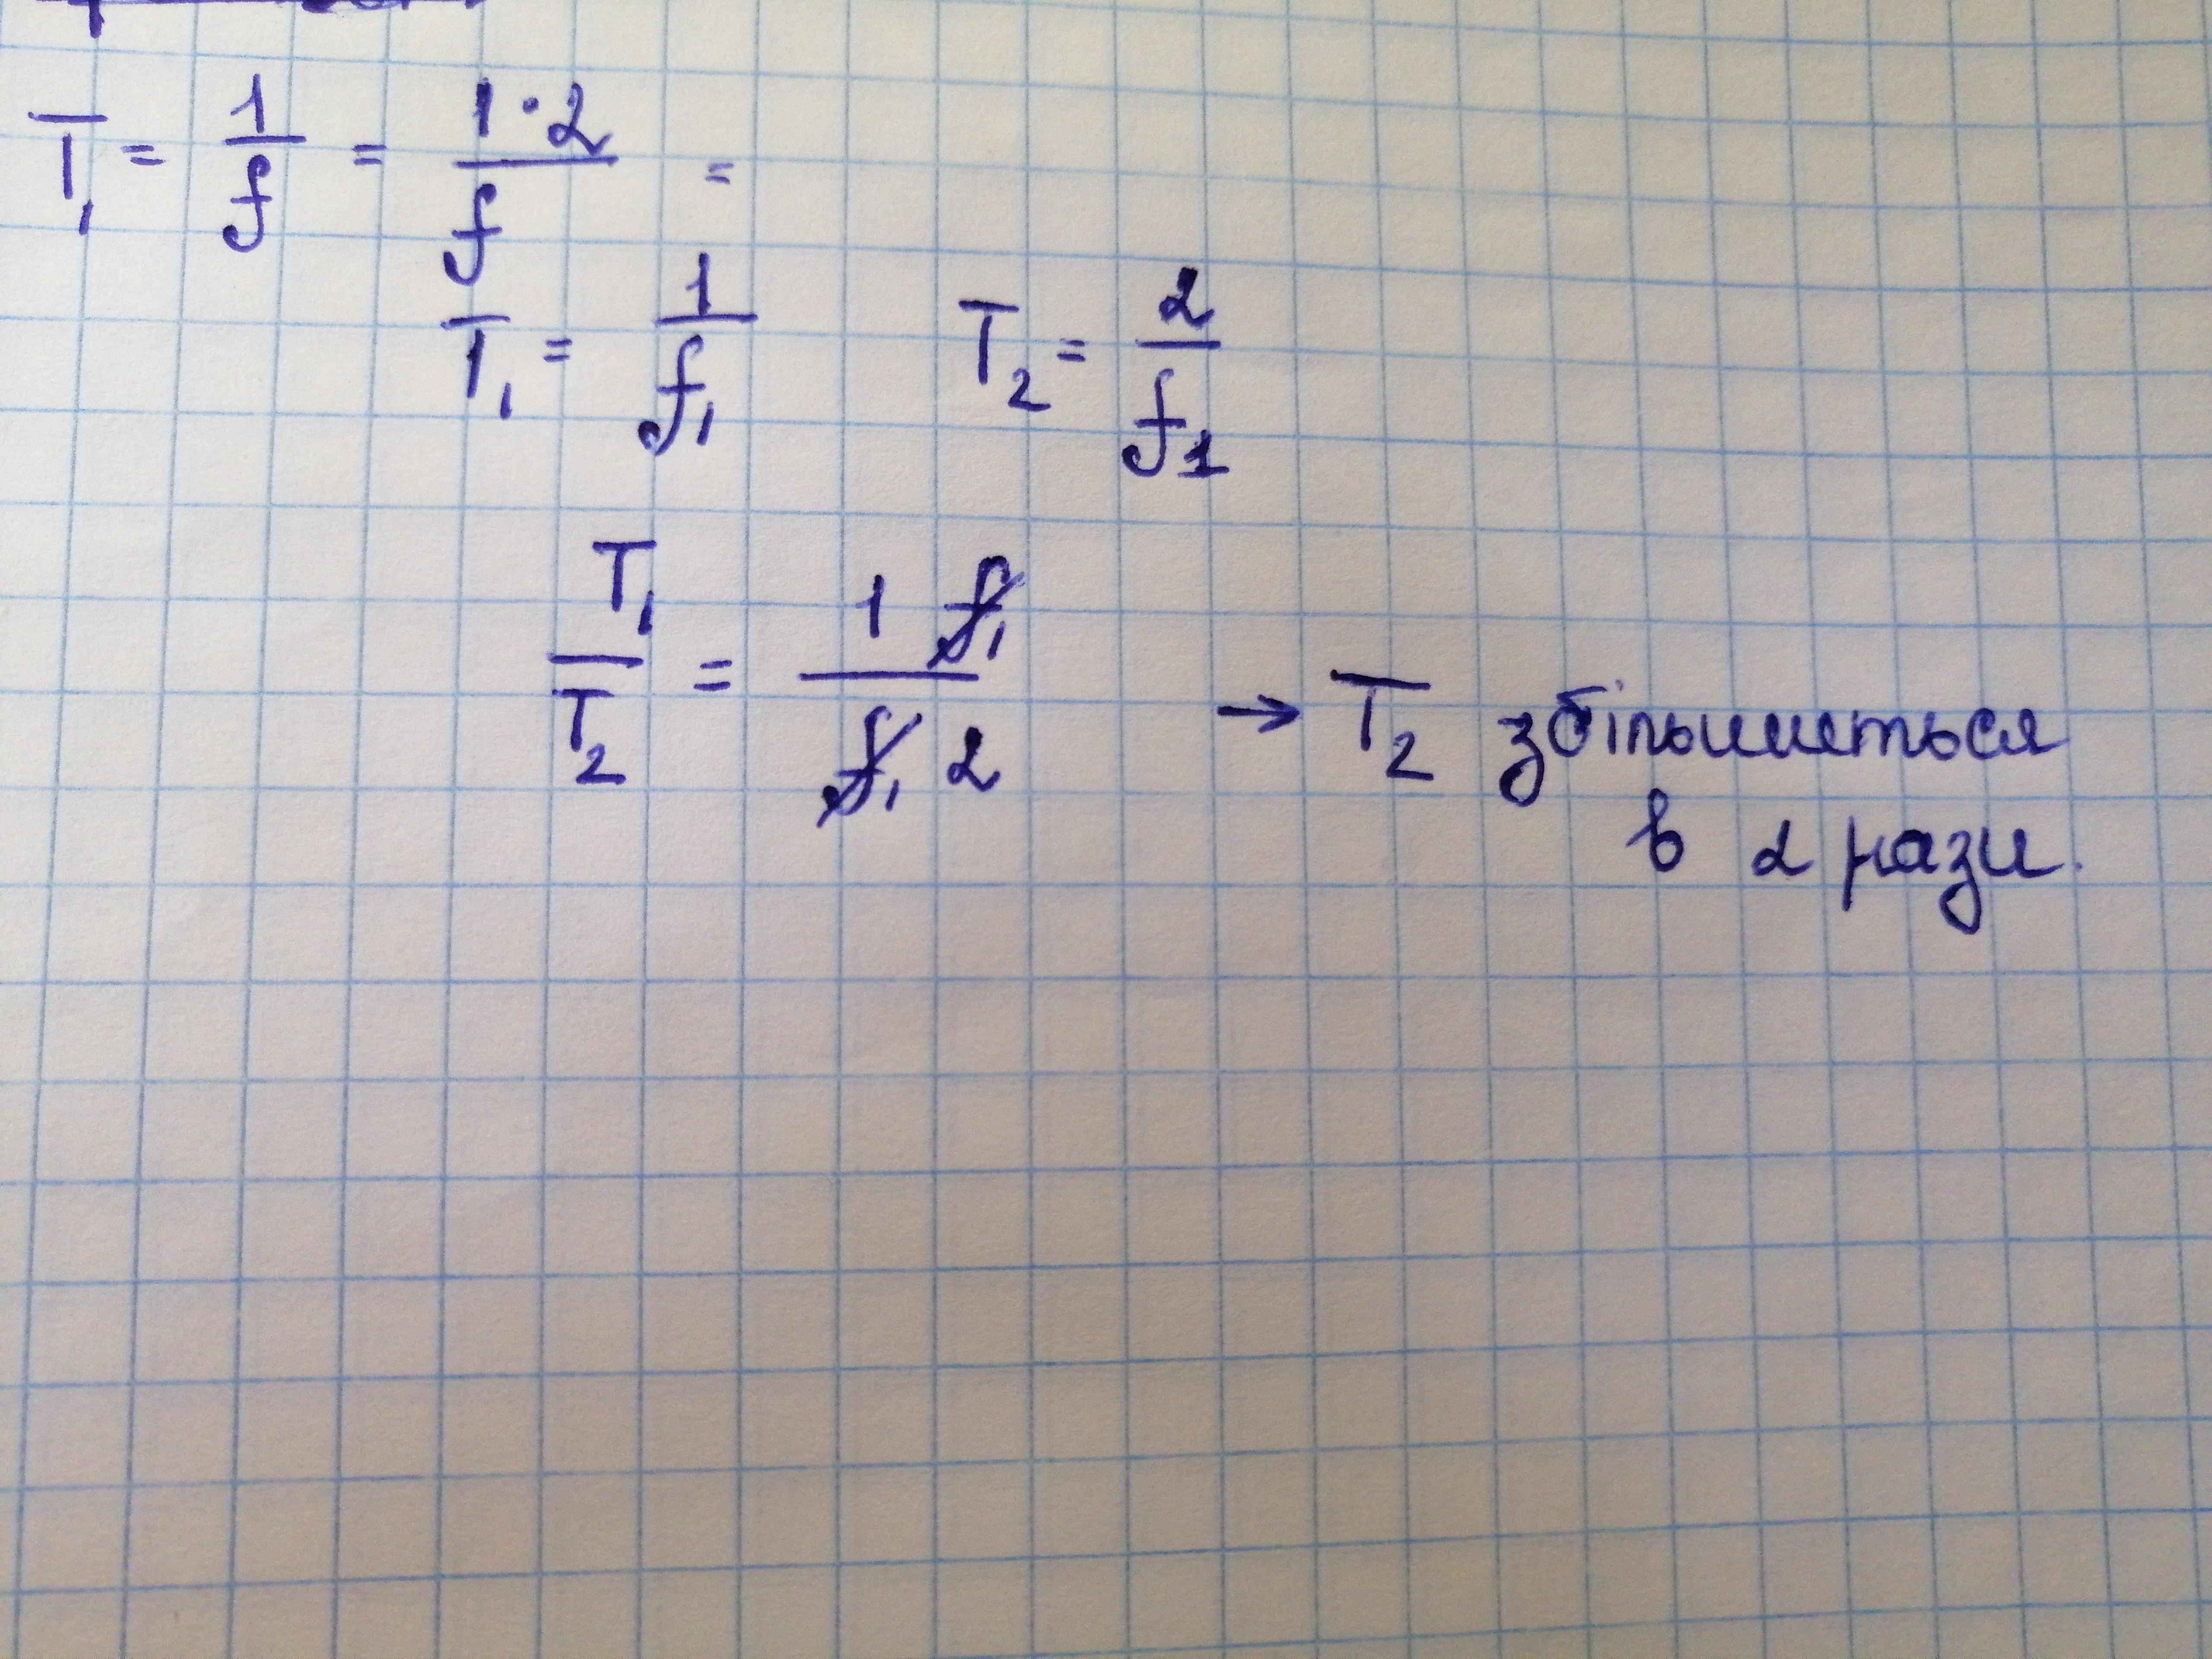 T₁ = 1/f = 1·2/f =
T₁ = 1/f₁ T₂ = 2/f₁
T₁/T₂ = 1 f₁/f₁ 2 → T₂ збільшиться
в 2 рази.